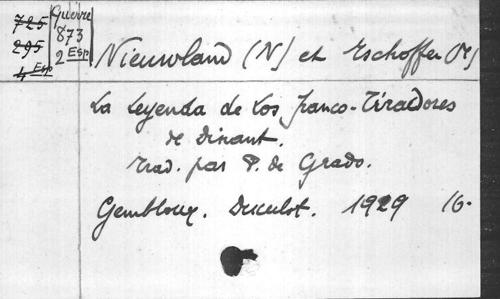 725
295
4 Esp
Guerre
873
2 Esp
Nieuwland (N) et Tschoffen (M)
La Leyenda de Los franco-Tiradores
de Dinant.
Trad. par P. de Grado.
Gembloux. Duculot. 1929 16-